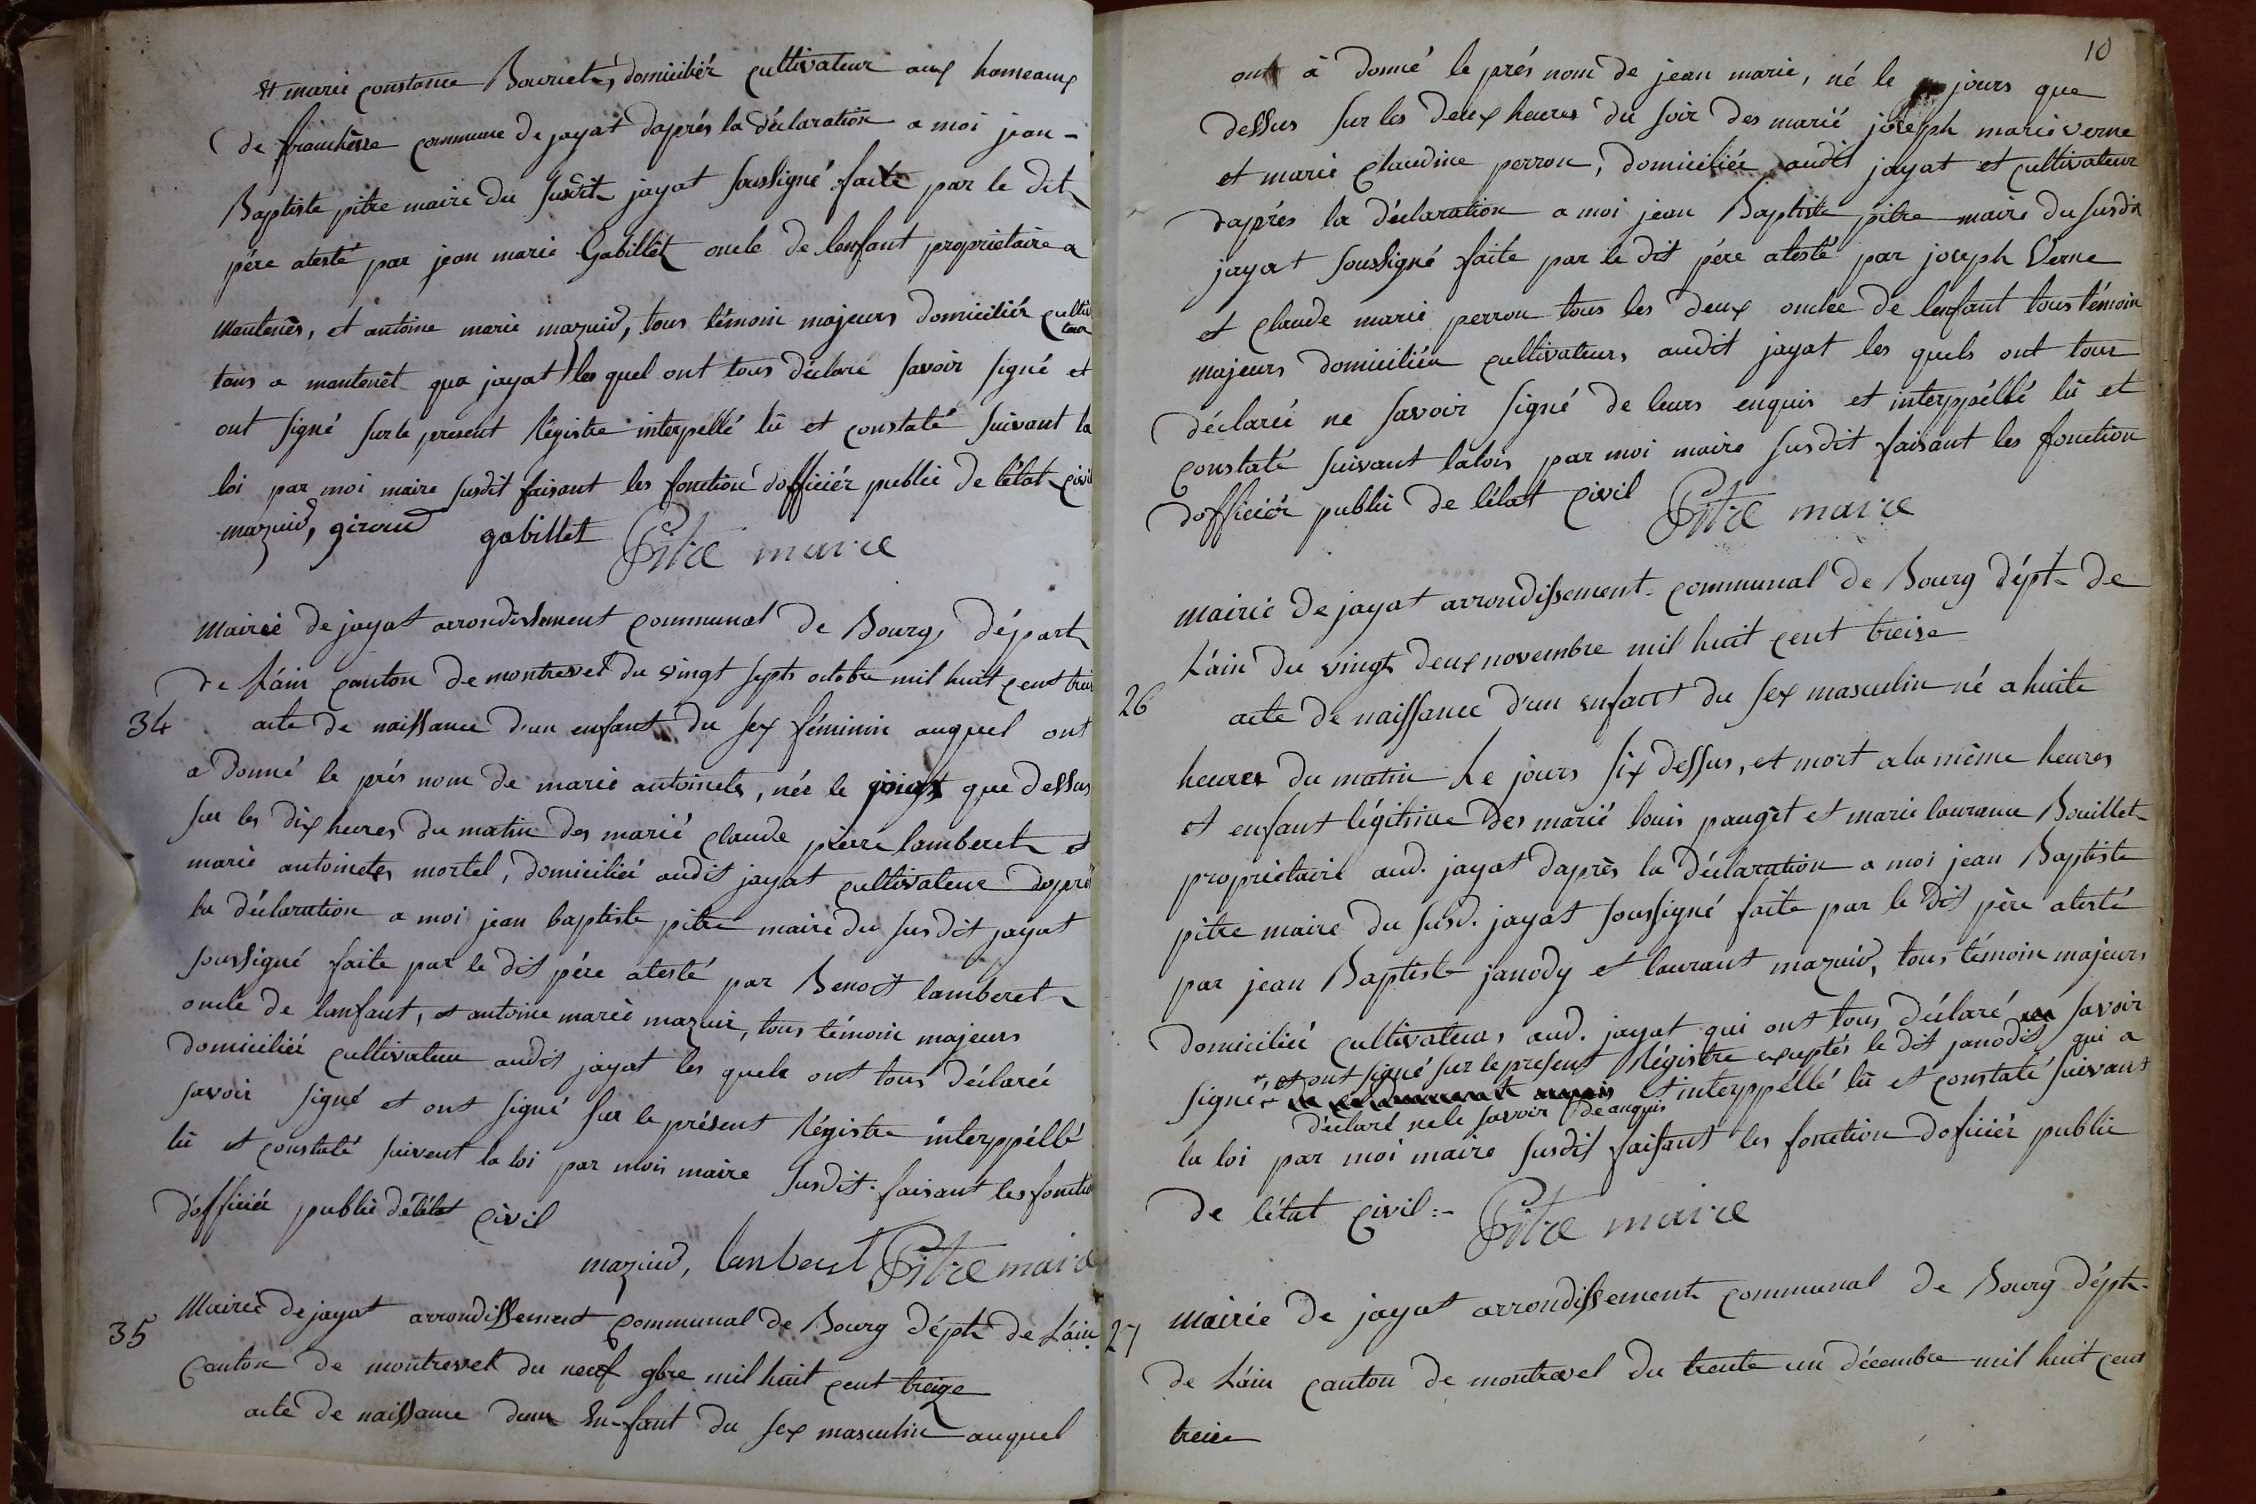 et marie constance Bouvret, domicilier cultivateur aux hameaux
de franchesse commune de jayat daprés la déclaration a moi jean -
Baptiste pitre maire du susdit jayat soussigné faite par le dit
pére atesté par jean marie Gabillet oncle de lenfant proprietaire a
mantenés, et antoine marie mazuid, tous témoin majeurs domiciliér cultiva
teur
tans a mantenêt qua jayat les quel ont tous déclaré savoir signé et
ont signé sur le present Régistre interpellé lù et constaté suivant la
loi par moi maire susdit faisant les fonction dofficiér public de létat civil
mazuid, giroud gabillet Pitre maire
Mairie de jayat arrondissement communal de Bourg, départ
de Láin canton de montrevel du vingt sept octobre mil huit cent trei
34 acte de naissance d'un enfant du sex féminin auquel ont
a donné le prés nom de marie antoinete, née le jour que dessus
sur les dix heures du matin des marié claude pierre lamberet et
marie antoinete mortel, domiciliéé audit jayat cultivateur daprés
la déclaration a moi jean baptiste pitre maire du sus dit jayat
soussigné faite par le dit pére atesté par Benoit lamberet
oncle de lanfant, et antoine marie mazuir, tous témoin majeurs
domiciliéé cultivateur audit jayat les quele ont tous déclaréé
savoir signé et ont signé sur le présent Régistre interppéllé
lù et constaté suivent la loi par mois maire susdit. faisant les fonction
dofficiéé public délétat civil
mazuid, lanberet Pitre maire
35 Mairie de jayat arrondissement communal de Bourg dépt de Láin
Canton de montrevel du neuf gbre mil huit cent treize
acte de naissance dun En-fant du sex masculin auquel
10
ont à donné le prés nom de jean marie, né le jours que
dessus sur les deux heures du soir des marié joseph marie verne
et marie claudine perron, domiciliéé audit jayat et cultivateur
daprés la déclaration a moi jean Baptiste pitre maire du susdit
jayat soussigné faite par le dit pére atesté par joseph Verne
et claude marie perron tous les deux onclee de lenfant tous témoin
majeurs domiciliéé cultivateurs audit jayat les quels ont tour
déclaréé ne savoir signé de leurs enquis et interppéllé lù et
constaté suivant lalois par moi maire susdit faisant les fonction
dofficiér public de létat civil Pitre maire
mairie de jayat arrondissement communal de Bourg dépt de
Láin du vingt deux novembre mil huit cent treise
26 acte de naissance d'un enfant du sex masculin né a huite
heures du matin Le jours six dessus, et mort a la même heures
et enfant légitime des marié louis pauget et marie laurance Bouillet
propriétaire aud. jayat daprès la déclaration a moi jean Baptiste
pitre maire du susd. jayat soussigné faite par le dit père atesté
par jean Baptiste janody et laurant mazuid, tous témoin majeurs
domiciliéé cultivateurs aud. jayat qui ont tous déclaré savoir
, et ont signé sur le present Régistre exeptés le dit janodit qui a
signé et interppéllé lù et constaté suivant
déclaré nele savoir de anquis
la loi par moi maire susdit faisant les fonction doficiér public
de létat civil :- Pitre maire
27 mairie de jayat arrondissement communal de Bourg dépt.
de Láin canton de montrevel du trente un décembre mil huit cent
treize